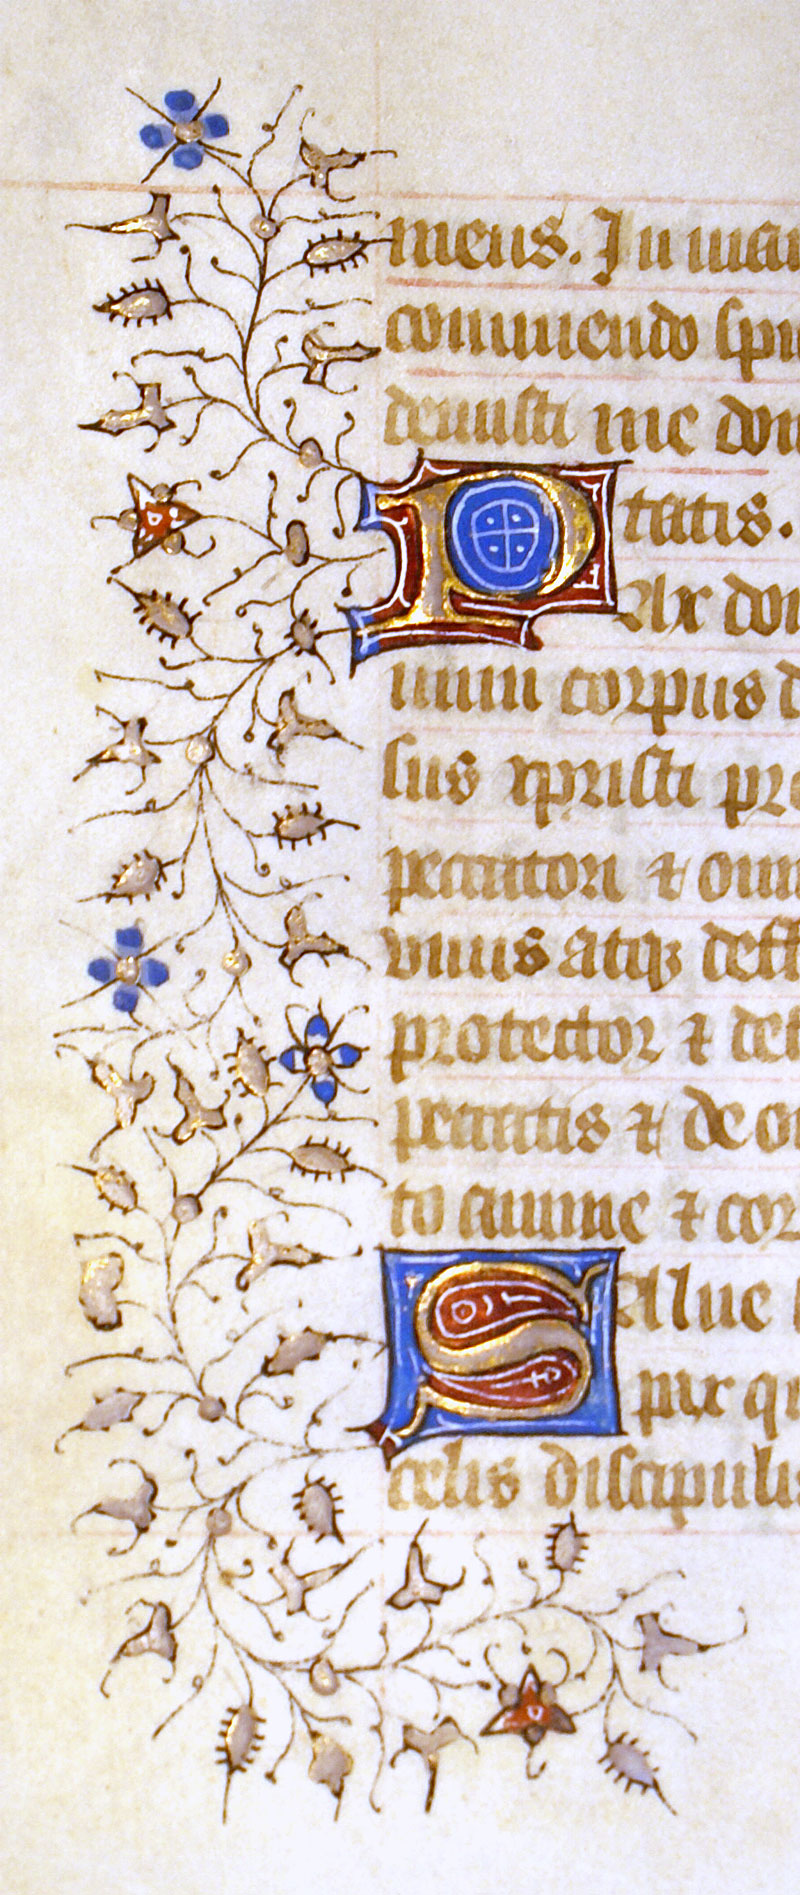 meus. In man
commendo spū
demisti me dom
tatis.
Pax dom
num corpus d
sus xpristi pro
peccatori & om
vimis atq; deff
protector & def
peccatis & de o
to anime & cor
Salue
pax q
celis discipulis